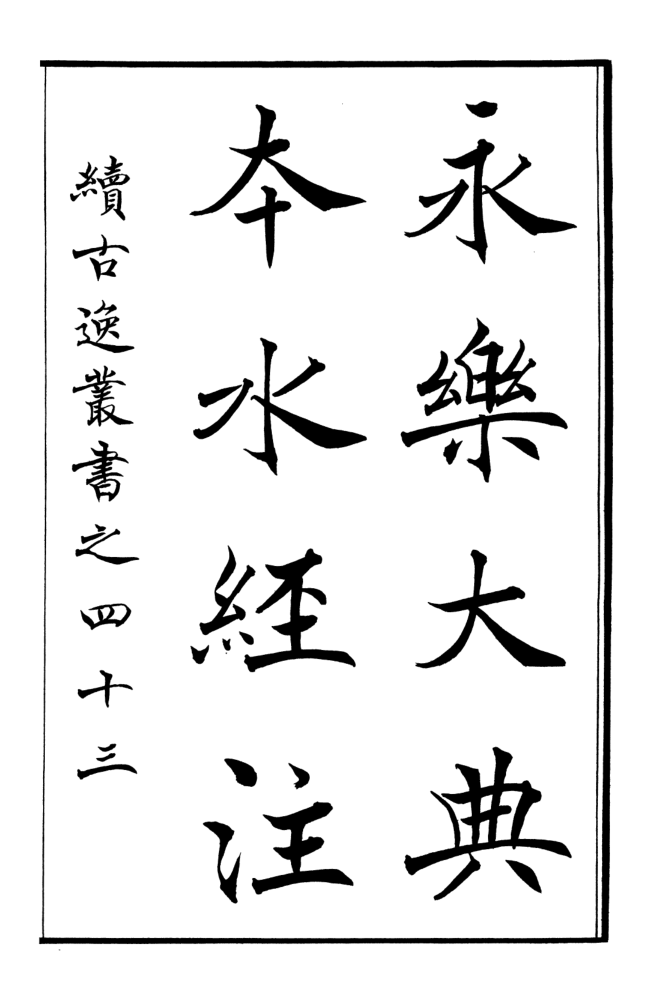 永樂大典
本水經注
續古逸叢書之四十三